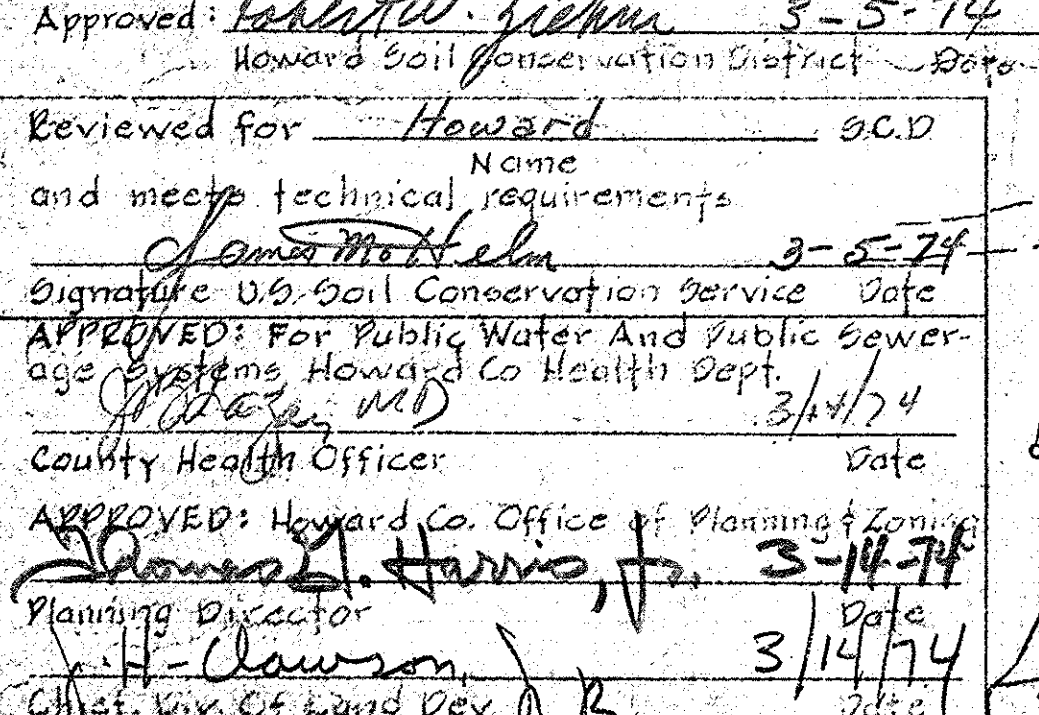 Approved: Robert W. Ziehm 3-5-74
Howard Soil Conservation District Date
Reviewed for Howard S.C.D
Name
and meets technical requirements
James M. Helm 3-5-74
Signature U.S. Soil Conservation Service Date
APPROVED: For Public Water And Public Sewer-
age Systems Howard Co Health Dept.
MD 3/14/74
County Health Officer Date
APPROVED: Howard Co. Office of Planning & Zoning
Thomas G. Harris, Jr. 3-14-74
Planning Director Date
H- Clawson, 3/14/74
Chief. Div. Of Land Dev. Date